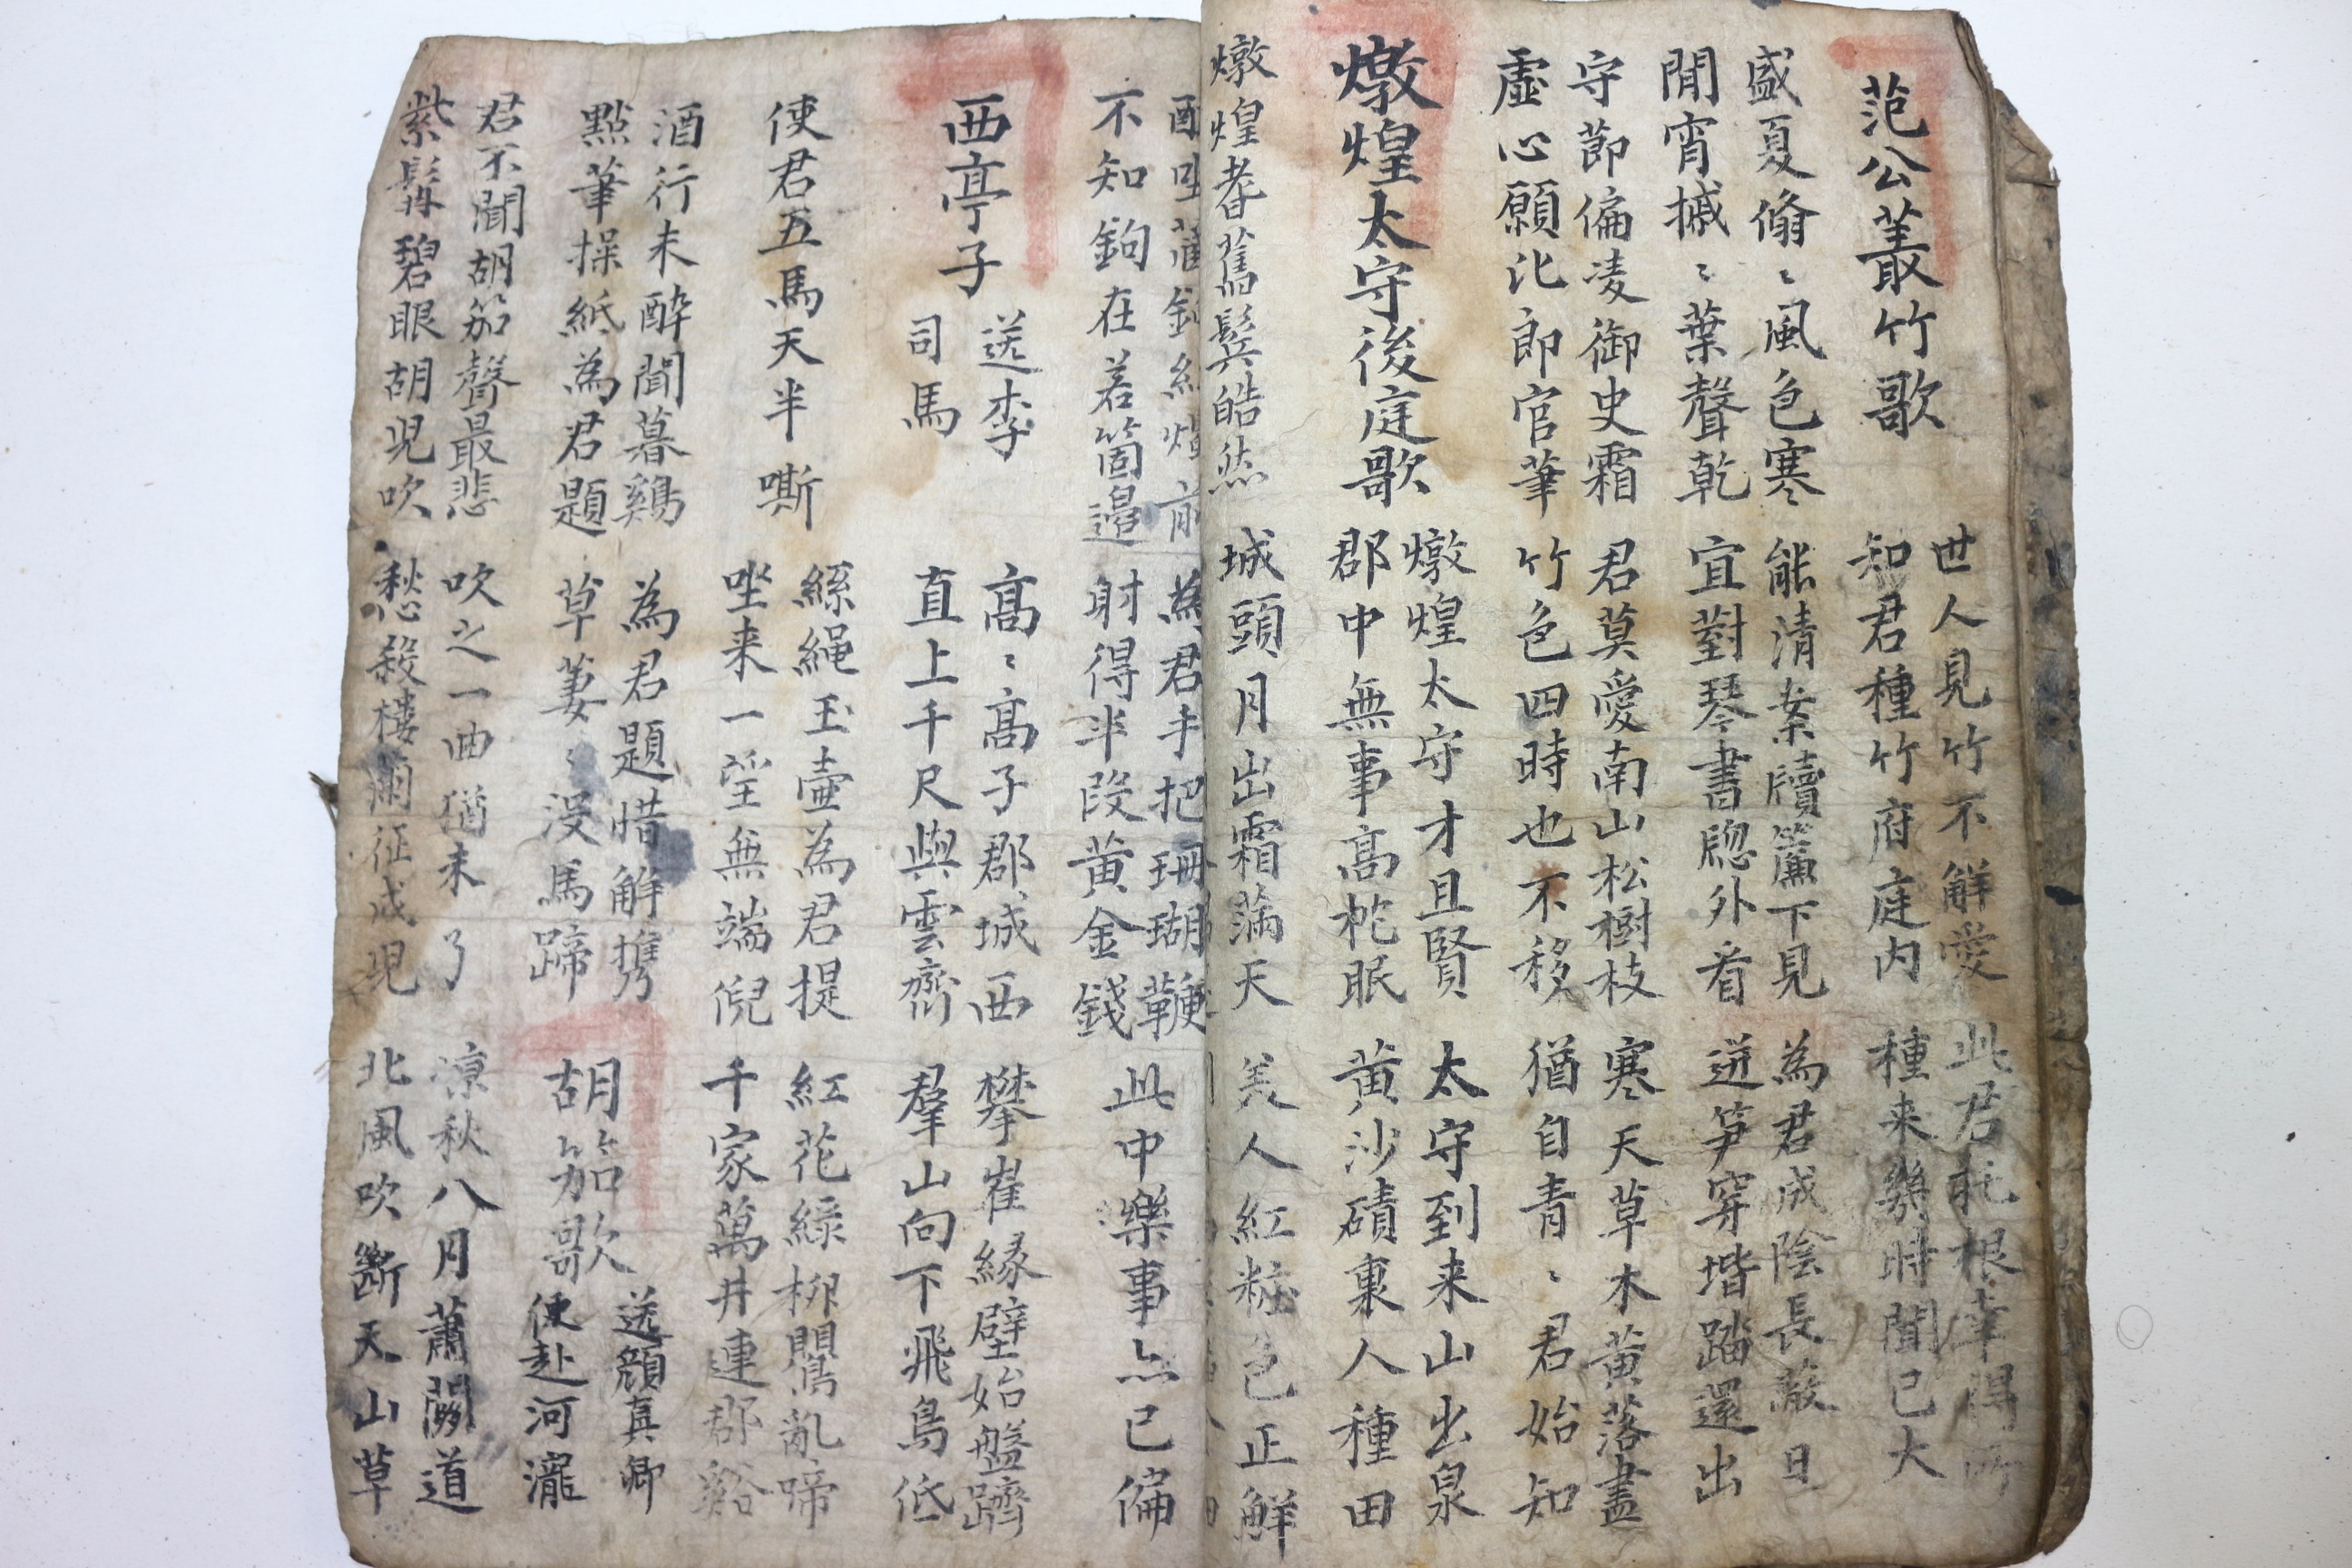 范公叢竹歌
世人見竹不解愛
知君種竹府庭内
此君託根幸得所
種来幾時聞已大
盛夏翛〻風色寒
閒宵摵〻葉聲乾
能清案牘簾下見
宜對琴書牕外看
為君成陰長蔽日
迸笋穿堦踏還出
守節偏凌御史霜
虛心願比郎官筆
君莫愛南山松樹枝
竹色四時也不移
寒天草木黄落盡
猶自青〻君始知
燉煌太守後庭歌
燉煌太守才且賢
郡中無事高枕眠
太守到来山出泉
黄沙磧裏人種田
燉煌耆舊鬂皓然
城頭月出霜滿天
美人紅粧色正鮮
不知鉤在若箇邊
為君手把珊瑚鞭
射得半段黄金錢
此中樂事亦已偏
西亭子
送李
司馬
高〻高子郡城西
直上千尺與雲齊
攀崖縁壁始盤躋
羣山向下飛鳥低
使君五馬天半嘶
絲繩玉壷為君提
坐来一望無端倪
紅花緑柳鸎亂啼
千家萬井連郡谿
酒行未醉聞暮鷄
點筆操紙為君題
為君題惜解攜
草萋〻没馬蹄
胡笳歌
送顔真卿
使赴河瀧
君不聞胡笳聲最悲
紫髯碧眼胡児吹
吹之一曲猶未了
愁殺樓蘭征戍児
凉秋八月蕭關道
北風吹斷天山草